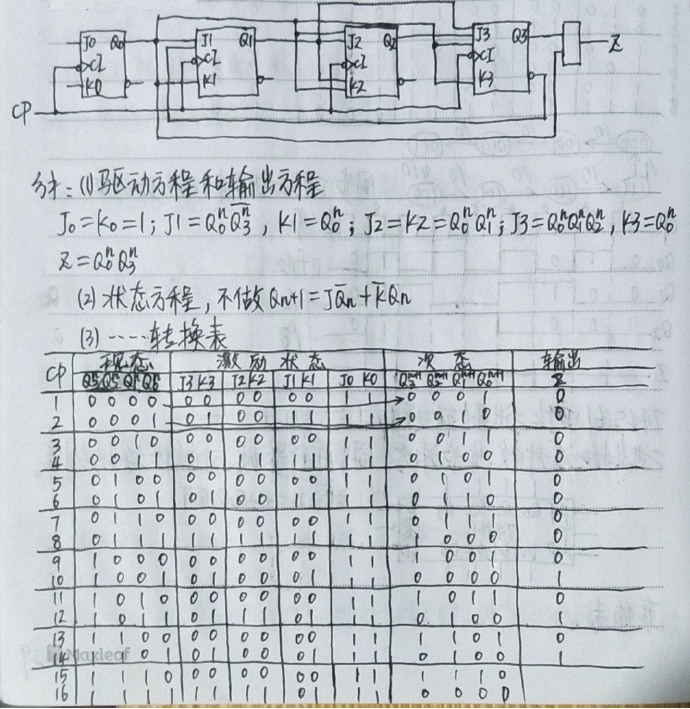 J0 Q0 J1 Q1 J2 Q2 J3 Q3
CI CI CI CI Z
K0 K1 K2 K3
CP
分析：(1)驱动方程和输出方程
J0=K0=1；J1=Q0ⁿQ̅3ⁿ，K1=Q0ⁿ；J2=K2=Q0ⁿQ1ⁿ；J3=Q0ⁿQ1ⁿQ2ⁿ，K3=Q0ⁿ
Z=Q0ⁿQ3ⁿ
(2)状态方程，不做 Qn+1=JQ̅n+K̅Qn
(3)……转换表
CP 现态 激励状态 次态 输出
Q3ⁿ Q2ⁿ Q1ⁿ Q0ⁿ J3 K3 J2 K2 J1 K1 J0 K0 Q3ⁿ⁺¹ Q2ⁿ⁺¹ Q1ⁿ⁺¹ Q0ⁿ⁺¹ Z
1 0 0 0 0 0 0 0 0 0 0 1 1 0 0 0 1 0
2 0 0 0 1 0 1 0 0 1 1 1 1 0 0 1 0 0
3 0 0 1 0 0 0 0 0 0 0 1 1 0 0 1 1 0
4 0 0 1 1 0 1 1 1 1 1 1 1 0 1 0 0 0
5 0 1 0 0 0 0 0 0 0 0 1 1 0 1 0 1 0
6 0 1 0 1 0 1 0 0 1 1 1 1 0 1 1 0 0
7 0 1 1 0 0 0 0 0 0 0 1 1 0 1 1 1 0
8 0 1 1 1 1 1 1 1 1 1 1 1 1 0 0 0 0
9 1 0 0 0 0 0 0 0 0 0 1 1 1 0 0 1 0
10 1 0 0 1 0 1 0 0 0 1 1 1 0 0 0 0 1
11 1 0 1 0 0 0 0 0 0 0 1 1 1 0 1 1 0
12 1 0 1 1 0 1 1 1 0 1 1 1 0 1 0 0
13 1 1 0 0 0 0 0 0 0 0 1 1 1 1 0 1 0
14 1 1 0 1 0 1 0 0 0 1 1 1 0 1 0 0 1
15 1 1 1 0 0 0 0 0 0 0 1 1 1 1 1 0
16 1 1 1 1 1 1 1 1 0 1 1 1 0 0 0 0
Maxleaf